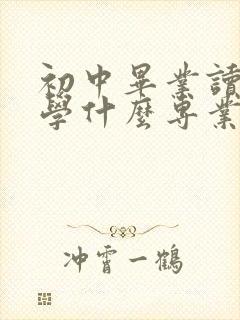 初中畢業讀
學什麼專業
冲霄一鶴